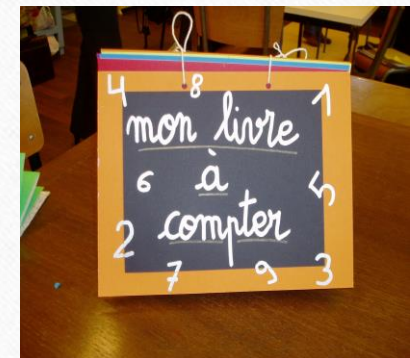 4 8 1
mon livre
6 à 5
compter
2
7 9 3